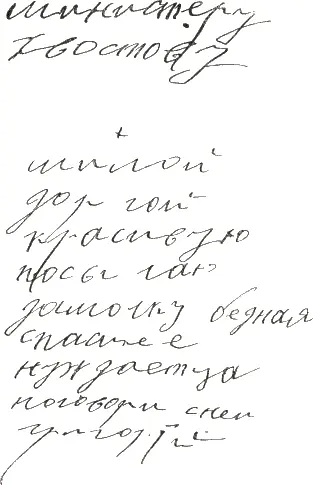 министеру
хвостову
+
милой
доргой
красивую
посылаю
дамочку бедная
спаси ее
нуждаетца
поговори сней
григорий